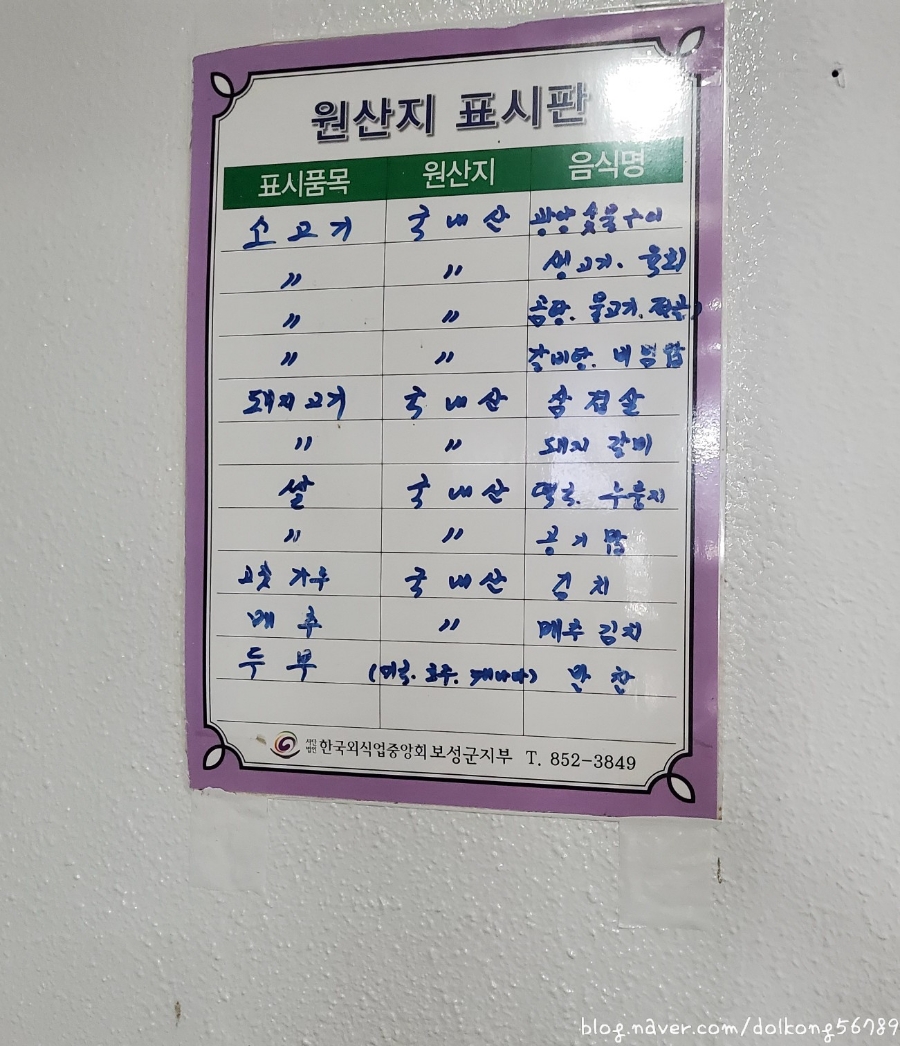 원산지 표시판
표시품목 원산지 음식명
소고기 국내산 광양숯불구이
〃 〃 생고기. 육회
〃 〃 곰탕. 불고기. 전골
〃 〃 갈비탕. 비빔밥
돼지고기 국내산 삼겹살
〃 〃 돼지 갈비
쌀 국내산 떡국. 누룽지
〃 〃 공기밥
고춧가루 국내산 김치
배추 〃 배추 김치
두부 (미국. 호주. 캐나다) 반찬
사단법인 한국외식업중앙회 보성군지부 T. 852-3849
blog.naver.com/dolkong56789